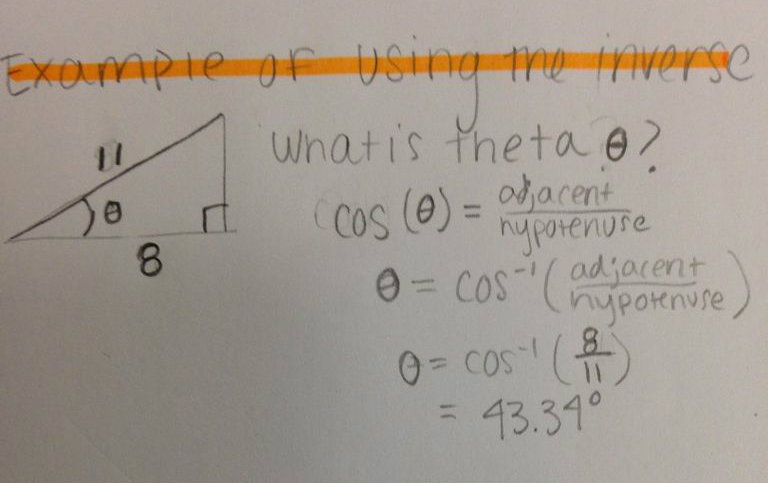 Example of using the inverse
11
θ
8
What is theta θ?
cos (θ) = adjacent/hypotenuse
θ = cos⁻¹ (adjacent/hypotenuse)
θ = cos⁻¹ (8/11)
= 43.34°